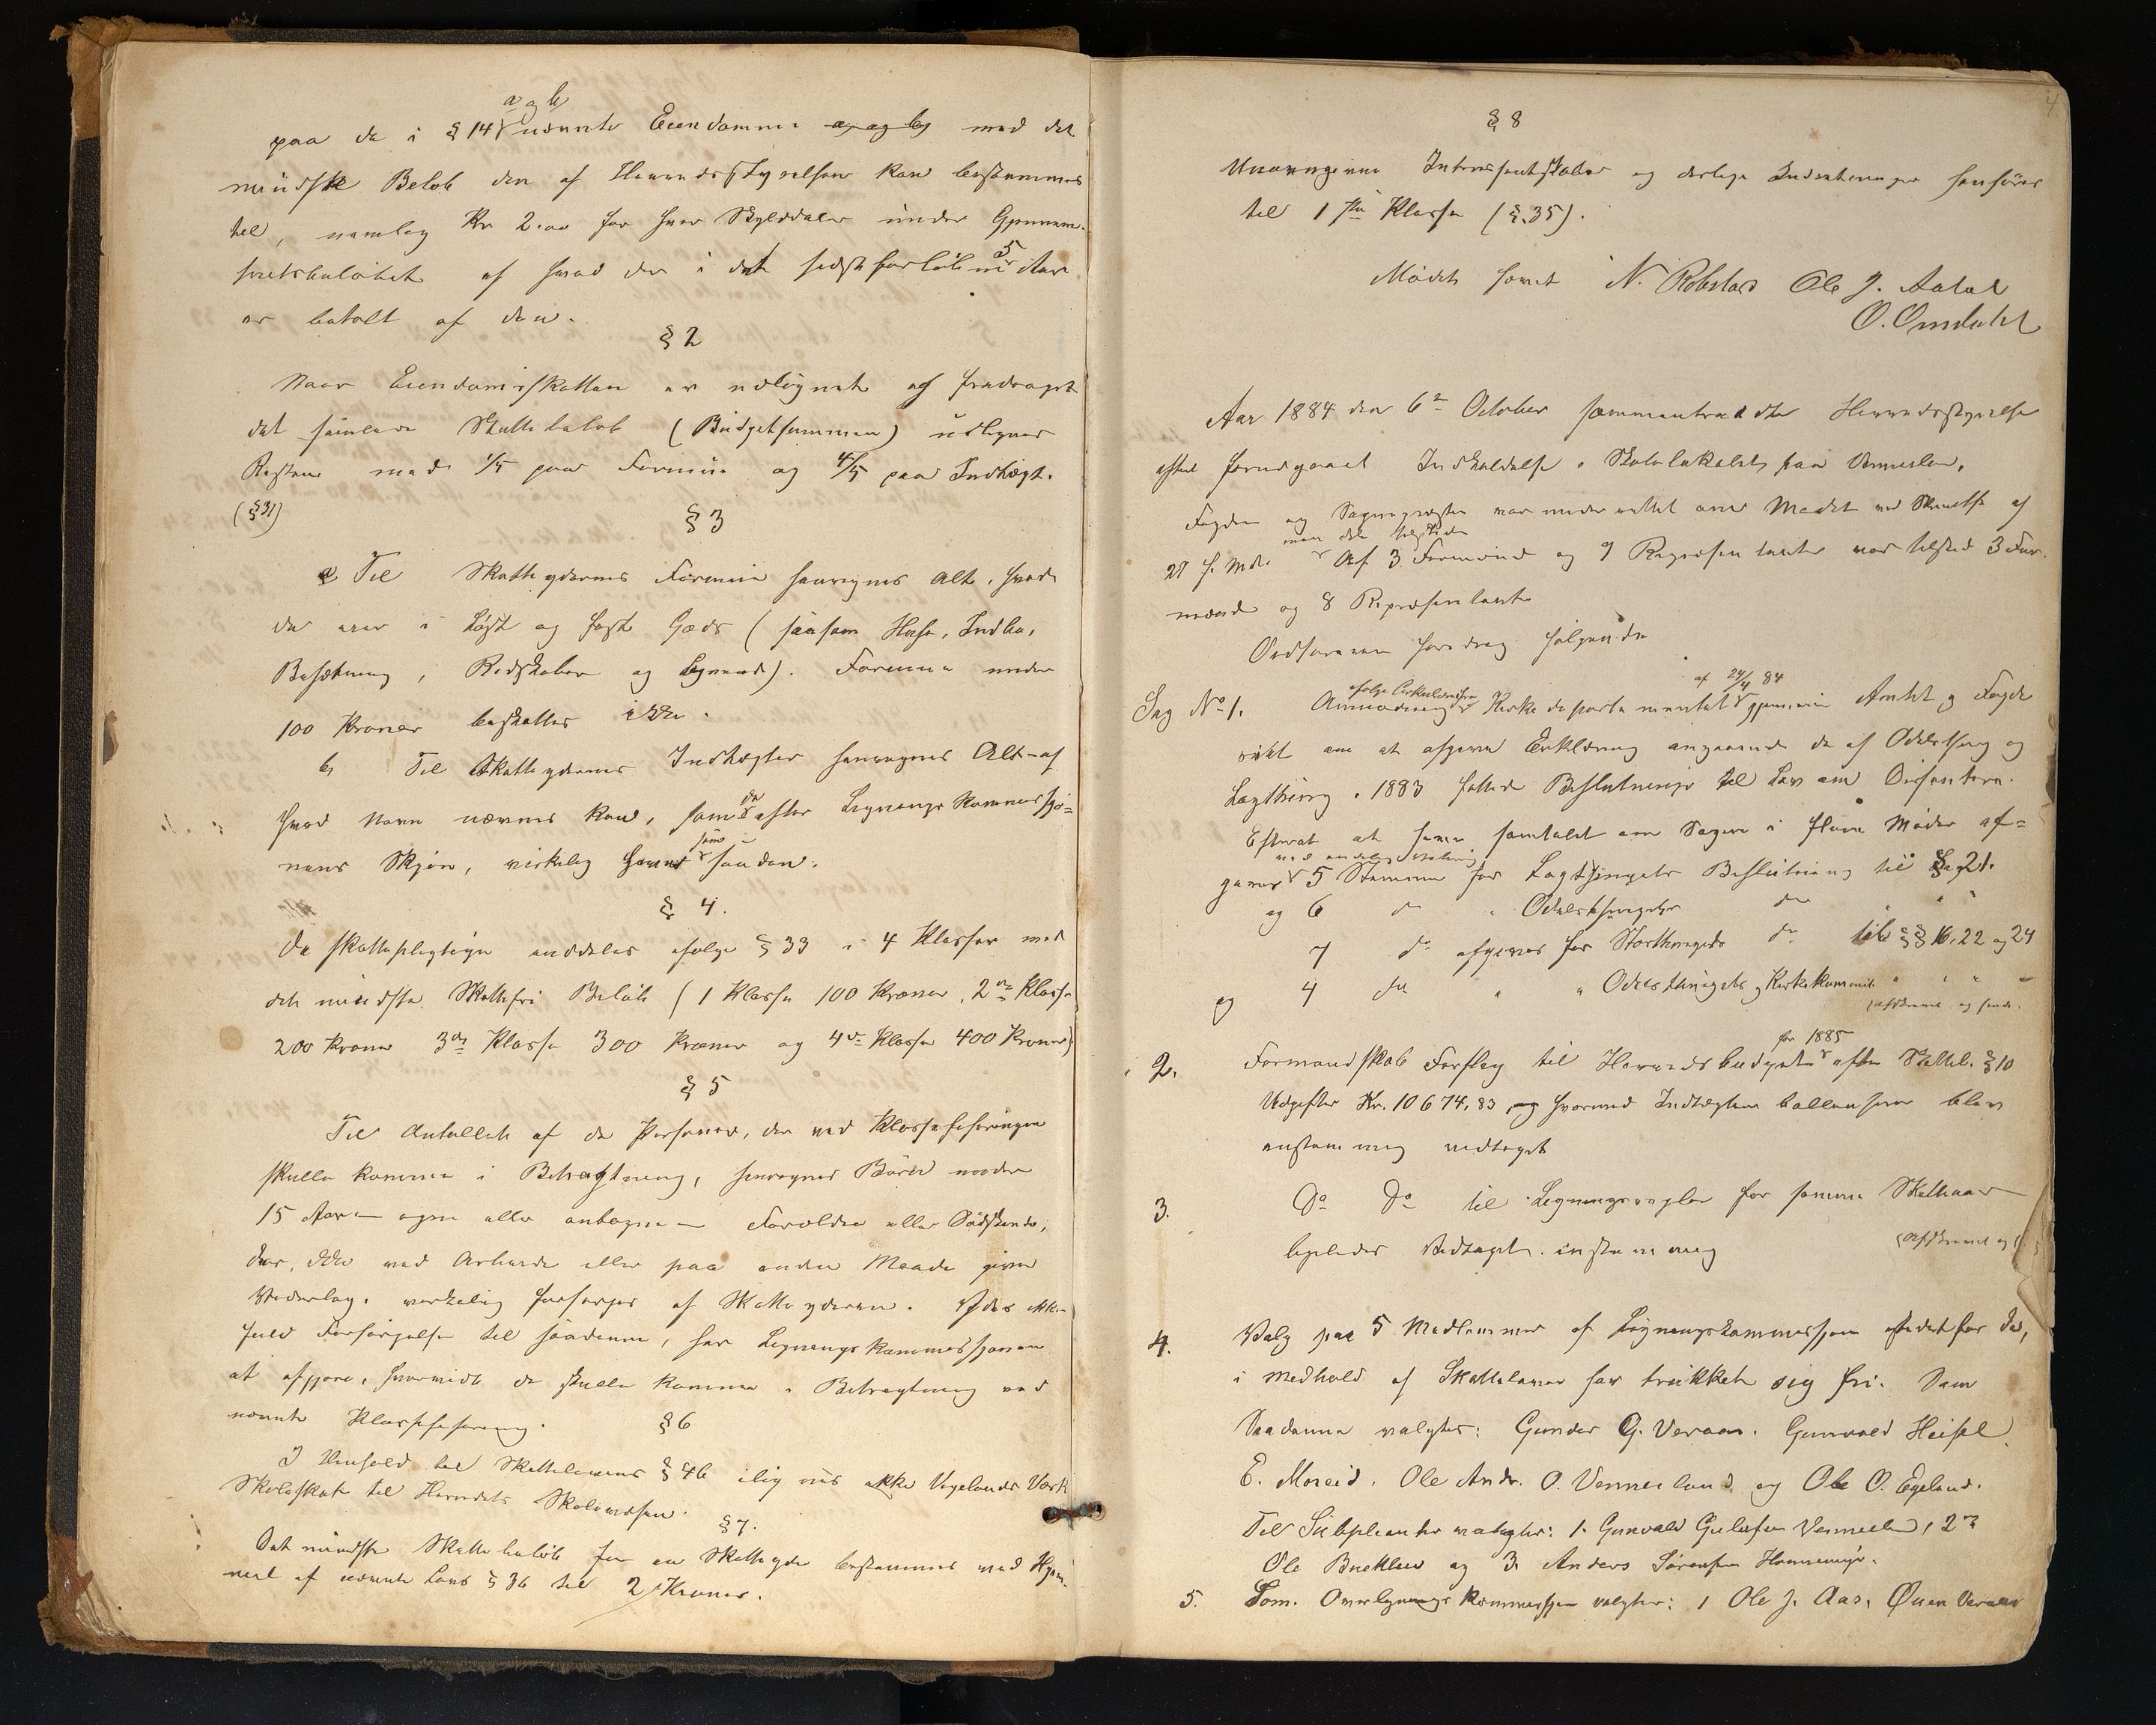 a og b
paa de i § 14 nævnte Eiendomme a, og b, med det
mindste Beløb den af Herredsstyrelsen kan bestemmes
til, nemlig Kr 2.00 for hver Skylddaler under Gjennem-
snitsbeløbet af hvad der i det sidst forløbne 5 Aar
er betalt af den.
§ 2
Naar Eiendomsskatten er udlignet og fradraget
det samlede Skattebeløb (Budgetsummen) udlignes
Resten med 1/5 paa Formue og 4/5 paa Indtægt.
(§ 31)
§ 3
a Til Skatteydernes Formue henregnes Alt, hvad
de eier i Løst og fast Gods (saasom Huse, Indbo,
Besætning, Redskaber og lignende). Formue under
100 Kroner beskattes ikke.
b, Til Skatteydernes Indtægter henregnes Alt af
hvad Navn nævnes kan, som de efter Ligningskommissjo=
nens Skjøn, virkelig som saadan.
§ 4.
De skattepligtige inddeles ifølge § 33 i 4 Klasser med
det mindste Skattefri Beløb (1 Klasse 100 Kroner, 2den Klasse
200 Kroner 3die Klasse 300 Kroner og 4de Klasse 400 Kroner)
§ 5
Til Antallet af de Personer, der ved Klasseføringen
skulle komme i Betragtning, henregnes Børn under
15 Aar – egne eller antagne – Forældre eller Sødskende,
der, ikke ved Arbeide eller paa anden Maade give
Vederlag, virkelig forsørges af Skatteyderen. Ydes ikke
fuld Forsørgelse til saadanne, har Ligningskommissjonen
at afgjøre, hvorvidt de skulle komme i Betragtning ved
nævnte Klasseføring.
§ 6
I Henhold til Skattelovens § 46 ilignes ikke Vigelands Værk
Skoleskat til Herredets Skolevæsen.
§ 7.
Det mindste Skattebeløb for en Skatteyder bestemmes med Hjem-
mel af nævnte Lovs § 36 til 2 Kroner.
4
§ 8
Unævngivne Interessentskaber og deslige Indretninger henføres
til 1ste Klasse (§.35).
Mødet hævet N. Robstad Ole J. Aatal
O. Omdahl
Aar 1884 den 6te October sammentraadte Herredsstyrelse
efter forudgaaet Indkaldelse i Skolelokalet paa Vennesla.
Fogden og Sognepræsten var underrettet om Mødet ved Skrivelse af
men ikke tilstede
27 f. Md. Af 3 Formænd og 9 Repræsentanter var tilsted 3 For-
mænd og 8 Repræsentanter
Ordføreren foredrog følgende
Sag No 1. Anmodning ifølge Cirkulære fra Kirkedepartementet af 24/4 84 gjennem Amtet og Fogde
riet om at afgive Erklæring angaaende de af Odelsthing og
Lagthing i 1883 fattede Beslutninger til Lov om Dissentere.
Efterat at have samtalet om Sagen i flere Møder af=
gaves 5 Stemmer for Lagthingets Beslutning til § 21.
og 6 do " Odelsthingets do " "
7 do afgives for Storthingets do til §§ 16, 22 og 24
og 4 do " " Odelsthingets Kirkekomite " " " "
2. Formandskab Forslag til Herredsbudget for 1885 efter Skattel. § 10
Udgifter Kr. 10674,83, og hvormed Indtægten balanserer blev
enstemmig vedtaget
3. Do Do til Ligningsregler for samme Skatteaar
ligeledes Vedtaget enstemmig
4. Valg paa 5 Medlemmer af Ligningskommissjon istedetfor de,
i medhold af Skatteloven har trukket sig fri. Som
Saadanne valgtes: Gunder G. Veraas. Gunvald Heisel
E. Moseid. Ole Andr. O. Vennesland og Ole O. Egeland.
Til Suppleanter valgtes: 1. Gunvald Gulufsen Vennesla, 2den
Ole Bueklev og 3. Anders Sørensen Hommemyr.
5. Som Overlignings Kommissjon valgtes: 1 Ole J. Aas, Øuen Veraas